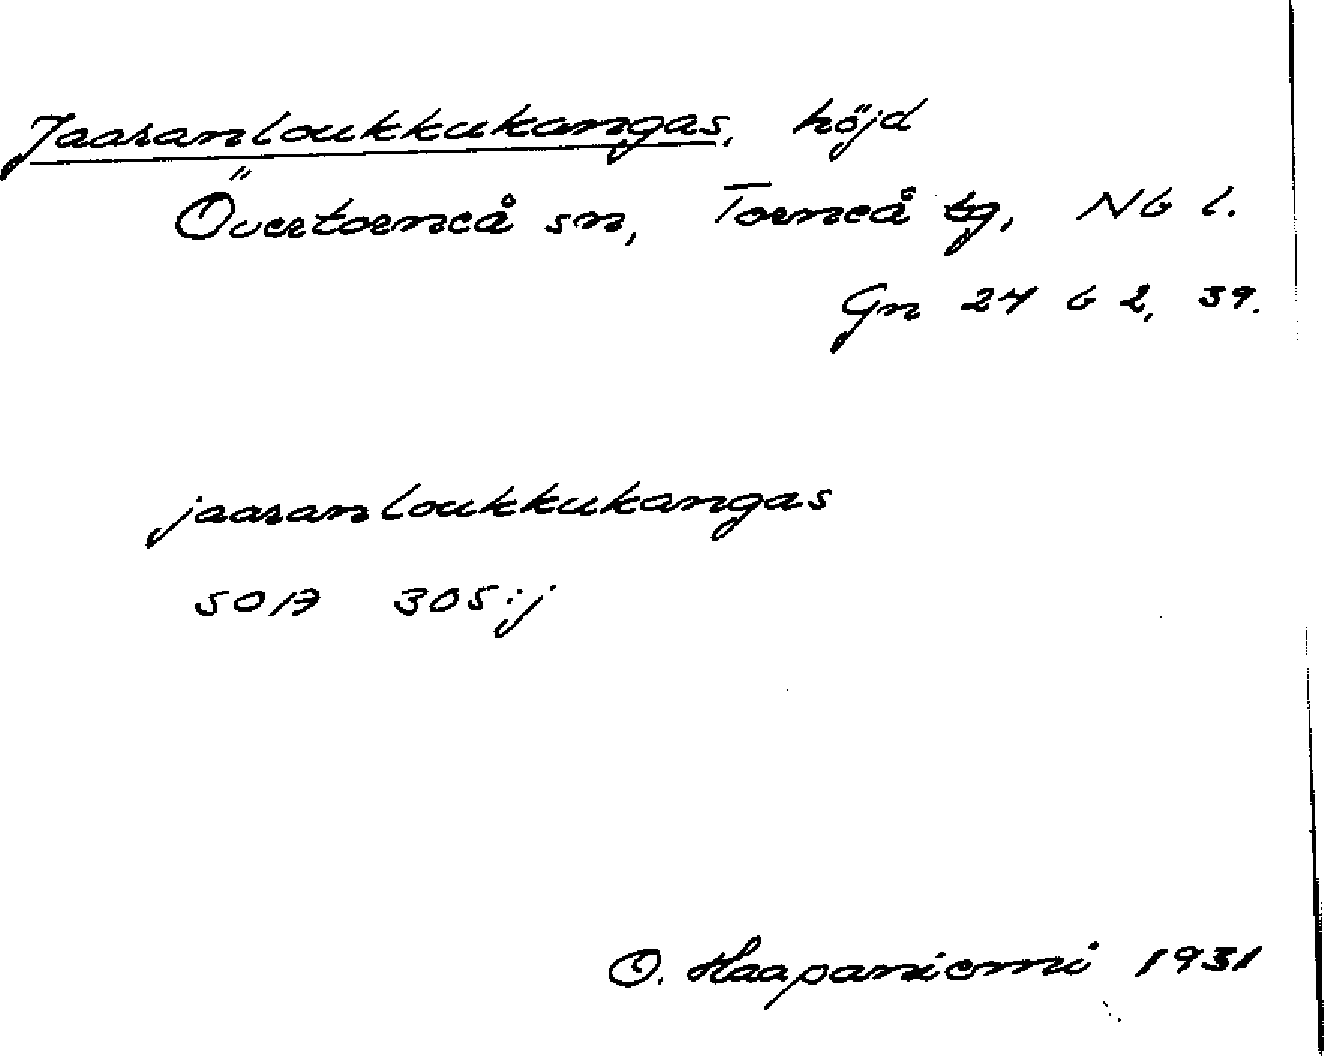 Jaaranloukkukangas, höjd
Övertorneå sn, Torneå tg, Nb l.
Gn 24 b 2, 39.
jaaranloukkukangas
SOA 305:j
O. Haapaniemi 1931